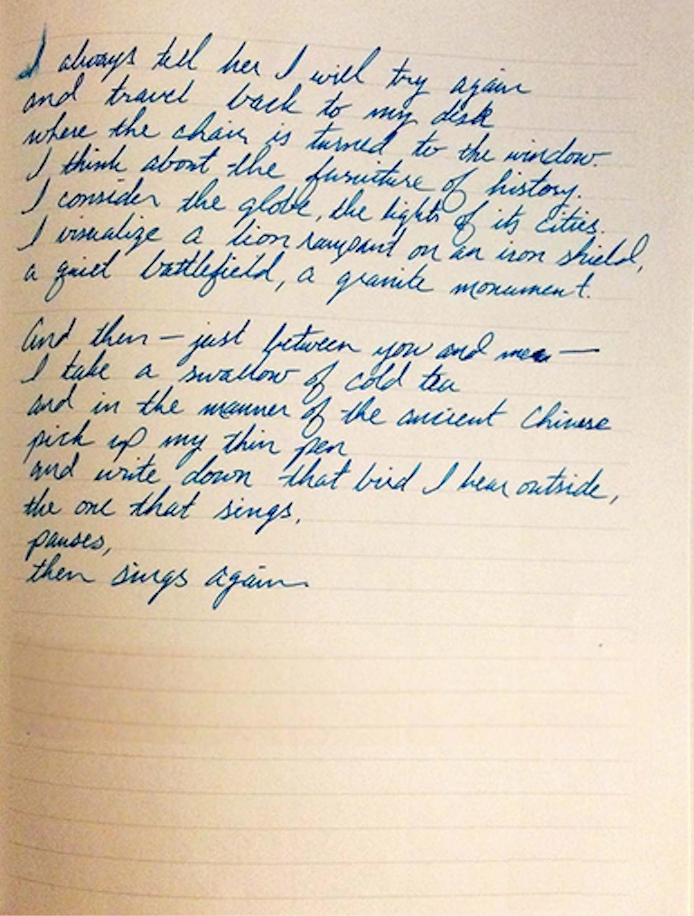 I always tell her I will try again
and travel back to my desk
where the chair is turned to the window.
I think about the furniture of history.
I consider the globe, the lights of its cities.
I visualize a lion rampant on an iron shield,
a quiet battlefield, a granite monument.
And then — just between you and me —
I take a swallow of cold tea
and in the manner of the ancient Chinese
pick up my thin pen
and write down that bird I hear outside,
the one that sings,
pauses,
then sings again.